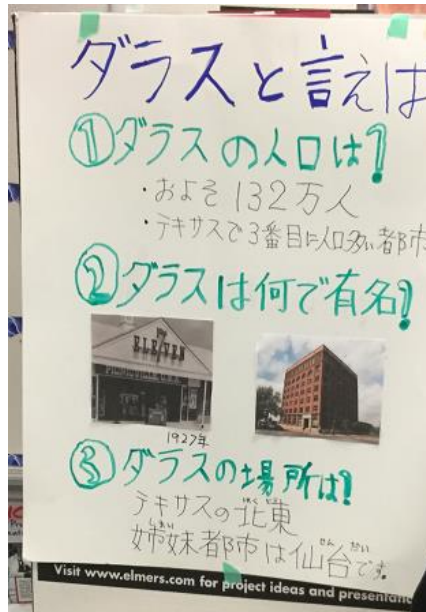 ダラスと言えば
①ダラスの人口は?
・およそ132万人
・テキサスで3番目に人口多い都市
②ダラスは何で有名?
ELEVEN
1927年
③ダラスの場所は?
テキサスの北東
姉妹都市は仙台です。
Visit www.elmers.com for project ideas and